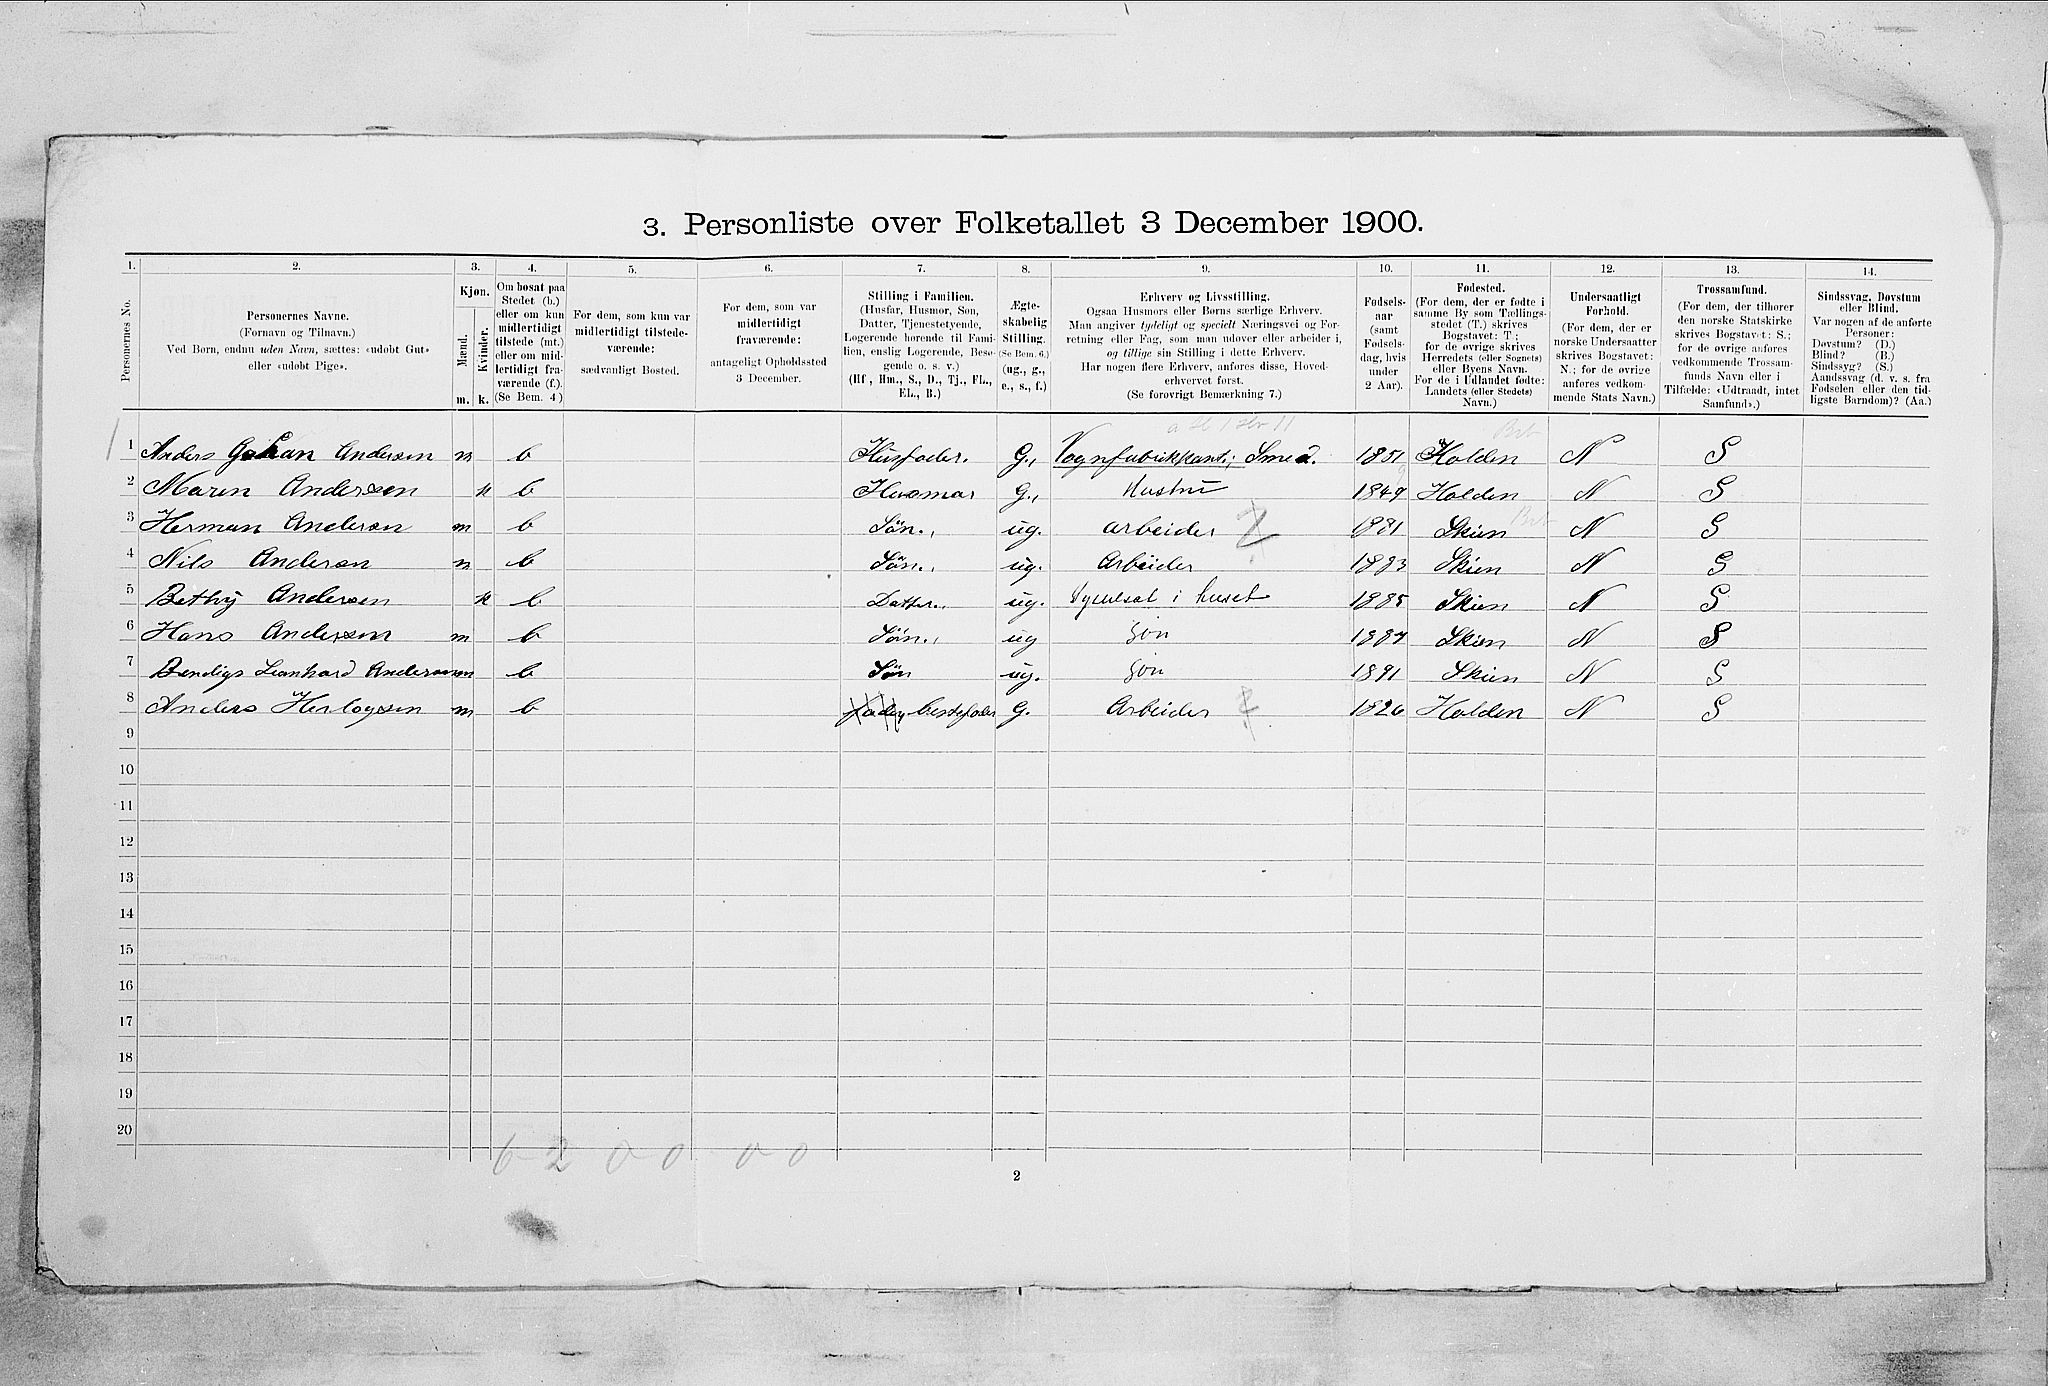 3. Personliste over Folketallet 3 December 1900.
1. 2. 3. 4. 5. 6. 7. 8. 9. 10. 11. 12. 13. 14.
Personernes No.
Personernes Navne.
(Fornavn og Tilnavn.)
Ved Børn, endnu uden Navn, sættes: «udøbt Gut»
eller «udøbt Pige».
Kjøn.
Mænd. Kvinder.
m. k.
Om bosat paa
Stedet (b.)
eller om kun
midlertidigt
tilstede (mt.)
eller om mid-
lertidigt fra-
værende (f.).
(Se Bem. 4)
For dem, som kun var
midlertidigt tilstede-
værende:
sædvanligt Bosted.
For dem, som var
midlertidigt
fraværende:
antageligt Opholdssted
3 December.
Stilling i Familien.
(Husfar, Husmor, Søn,
Datter, Tjenestetyende,
Logerende hørende til Fami-
lien, enslig Logerende, Besø-
gende o. s. v.)
(Hf., Hm., S., D., Tj., FL.,
EL., B.)
Ægte-
skabelig
Stilling.
(Se Bem. 6.)
(ug., g.,
e., s., f.)
Erhverv og Livsstilling.
Ogsaa Husmors eller Børns særlige Erhverv.
Man angiver tydeligt og specielt Næringsvei og For-
retning eller Fag, som man udøver eller arbeider i,
og tillige sin Stilling i dette Erhverv.
Har nogen flere Erhverv, anføres disse, Hoved-
erhvervet først.
(Se forøvrigt Bemærkning 7.)
Fødsels-
aar
(samt
Fødsels-
dag, hvis
under
2 Aar).
Fødested.
(For dem, der er fødte i
samme By som Tællings-
stedet (T.) skrives
Bogstavet: T;
for de øvrige skrives
Herredets (eller Sognets)
eller Byens Navn.
For de i Udlandet fødte:
Landets (eller Stedets)
Navn.)
Undersaatligt
Forhold.
(For dem, der er
norske Undersaatter
skrives Bogstavet:
N.; for de øvrige
anføres vedkom-
mende Stats Navn.)
Trossamfund.
(For dem, der tilhører
den norske Statskirke
skrives Bogstavet: S.;
for de øvrige anføres
vedkommende Trossam-
funds Navn eller i
Tilfælde: «Udtraadt, intet
Samfund».)
Sindssvag, Døvstum
eller Blind.
Var nogen af de anførte
Personer:
Døvstum? (D.)
Blind? (B.)
Sindssyg? (S.)
Aandssvag (d. v. s. fra
Fødselen eller den tid-
ligste Barndom)? (Aa.)
1 Anders Johan Andersen m b Husfader. G., Vognfabrikkant; Smed. 1851 Holden N S
2 Maren Andersen k b Husmor G., Hustru 1849 Holden N S
3 Herman Andersen m b Sön., ug. arbeider 1881 Skien N S
4 Nils Andersen m b Sön., ug. Arbeider 1883 Skien N S
5 Bethy Andersen k b Datter., ug. Syuelsat i huset 1885 Skien N S
6 Hans Andersen m b Sön., ug Sön 1887 Skien N S
7 Bendigs Leonhard Andersen m b Sön ug. Sön 1891 Skien N S
8 Anders Herlogsen m b fader, bestefader G. Arbeider 1826 Holden N S
9
10
11
12
13
14
15
16
17
18
19
20
6 2 0 0 0 0
2